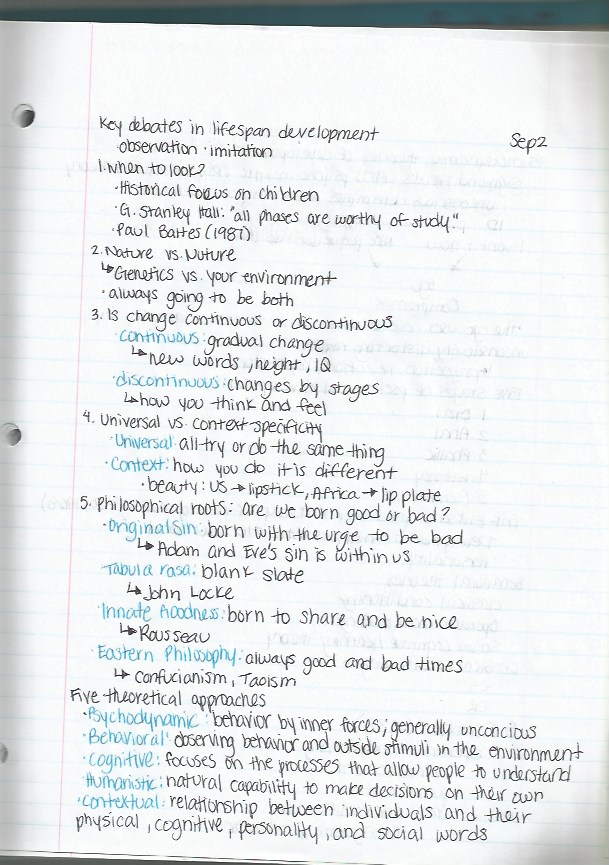 Key debates in lifespan development
Sep 2
observation · imitation
1. When to look?
· Historical focus on children
· G. Stanley Hall: "all phases are worthy of study".
· Paul Baltes (1987)
2. Nature vs. Nuture
↳ Genetics vs. your environment
· always going to be both
3. Is change continuous or discontinuous
· continuous: gradual change
↳ new words, height, IQ
· discontinuous: changes by stages
↳ how you think and feel
4. Universal vs. context-specificity
· Universal: all try or do the same thing
· Context: how you do it is different
· beauty: US → lipstick, Africa → lip plate
5. Philosophical roots: are we born good or bad?
· Original Sin: born with the urge to be bad
↳ Adam and Eve's sin is within us
Tabula rasa: blank slate
↳ John Locke
· Innate Goodness: born to share and be nice
↳ Rousseau
· Eastern Philosophy: always good and bad times
↳ Confucianism, Taoism
Five theoretical approaches
· Psychodynamic: behavior by inner forces; generally unconcious
· Behavioral: observing behavior and outside stimuli in the environment
· Cognitive: focuses on the processes that allow people to understand
Humanistic: natural capability to make decisions on their own
· Contextual: relationship between individuals and their
physical, cognitive, personality, and social words